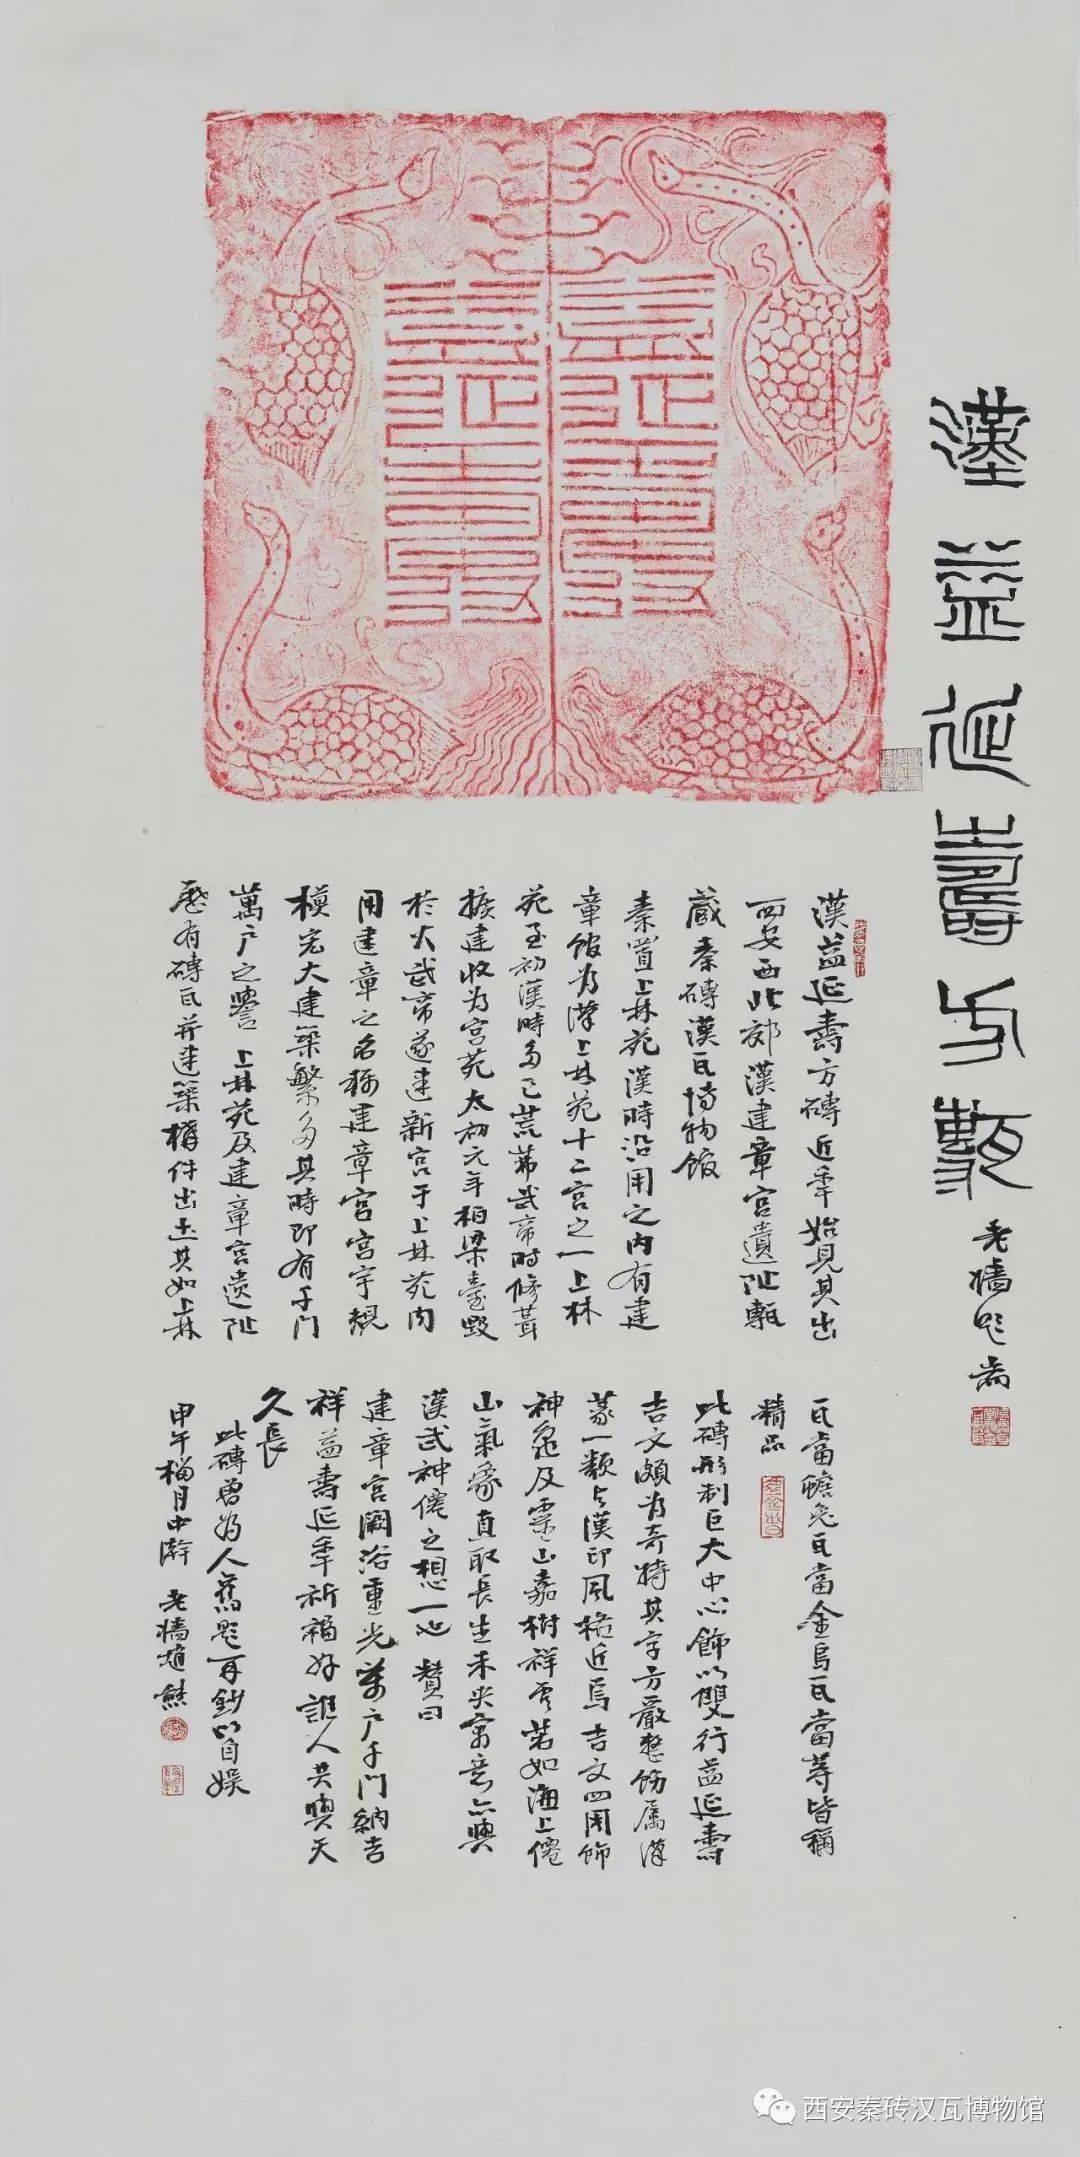 漢益延壽方甎
老牆題尚
漢益延壽方磚近年始見其出
西安西北郊漢建章宮遺址輒
藏秦磚漢瓦博物館
秦置上林苑漢時沿用之內有建
章館為漢上林苑十二宮之一上林
苑至初漢時多已荒蕪武帝時修葺
擴建收為宮苑太初元年柏梁臺毀
於火武帝遂建新宮于上林苑內
用建章之名稱建章宮宮宇規
模宏大建築繁多其時即有千門
萬户之譽上林苑及建章宮遗址
歷有磚瓦并建築構件出土其如上林
瓦當蟾兔瓦當金烏瓦當等皆稱
精品
此磚形制巨大中心飾以雙行益延壽
吉文頗為奇特其字方嚴整飭屬漢
篆一類与漢印風格近焉吉文四周飾
神龜及靈山嘉樹祥雲若如海上僊
山氣象直取長生未央寓意亦與
漢武神僊之想一也 贊曰
建章宮闕浴重光萬户千門納吉
祥益壽延年祈福好誰人共與天
久長
此磚曾為人舊題再鈔以自娛
甲午榴月中澣 老牆趙熊
西安秦砖汉瓦博物馆